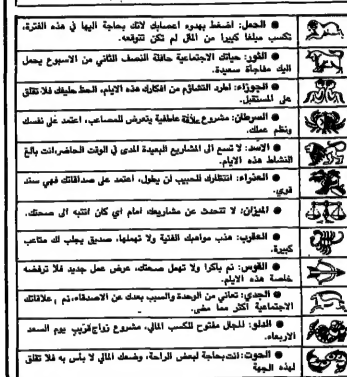 ● الحمل: اضغط بهدوء اعصابك لانك بحاجة اليها في هذه الفترة،
تكسب مبلغا كبيرا من المال لم تكن تتوقعه.
● الثور: حياتك الاجتماعية حافلة النصف الثاني من الاسبوع يحمل
اليك مفاجأة سعيدة.
● الجوزاء: اطرد التشاؤم من افكارك هذه الايام، الحظ حليفك فلا تقلق
على المستقبل.
● السرطان: مشروع علاقة عاطفية يتعرض للمصاعب، اعتمد على نفسك
ونظم عملك.
● الاسد: لا تسع الى المشاريع البعيدة المدى في الوقت الحاضر، انت بالغ
النشاط هذه الايام.
● العذراء: انتظارك للحبيب لن يطول، اعتمد على صداقاتك فهي سند
قوي.
● الميزان: لا تتحدث عن مشاريعك امام أي كان انتبه الى صحتك.
● العقرب: هذب مواهبك الفنية ولا تهملها، صديق يجلب لك متاعب
كبيرة.
● القوس: نم باكرا ولا تهمل صحتك، عرض عمل جديد فلا ترفضه
خاصة هذه الايام.
● الجدي: تعاني من الوحدة والسبب بعدك عن الاصدقاء، نم علاقاتك
الاجتماعية اكثر مما مضى.
● الدلو: المجال مفتوح للكسب المالي، مشروع زواج قريب يوم السعد
الاربعاء.
● الحوت: انت بحاجة لبعض الراحة، وضعك المالي لا بأس به فلا تقلق
لهذه الجهة